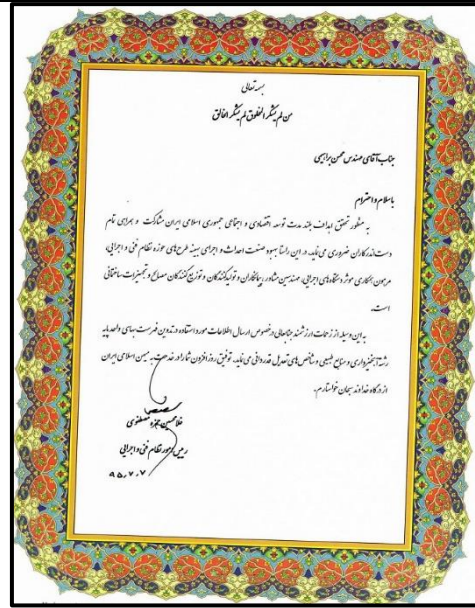 بسمه تعالی
من لم یشکر المخلوق لم یشکر الخالق
جناب آقای مهندس محسن براهیمی
با سلام و احترام
به منظور تحقق اهداف بلند مدت توسعه اقتصادی و اجتماعی جمهوری اسلامی ایران مشارکت و همراهی تمام
دست اندرکاران ضروری می نماید. در این راستا بهبود صنعت احداث و اجرای بهینه طرح های حوزه نظام فنی و اجرایی،
مرهون همکاری موثر دستگاه های اجرایی، مهندسین مشاور، پیمانکاران و تولیدکنندگان و توزیع کنندگان مصالح و تجهیزات ساختمانی
است.
به این وسیله از زحمات ارزشمند جنابعالی درخصوص ارسال اطلاعات مورد استفاده در تدوین فهرست بهای واحد پایه
رشته آبخیزداری و منابع طبیعی و شاخص های تعدیل قدردانی می نماید. توفیق روز افزون شما را در خدمت به میهن اسلامی ایران
از درگاه خداوند سبحان خواستارم.
غلامحسین حمزه مصطفوی
رییس امور نظام فنی و اجرایی
۹۵،۷،۷